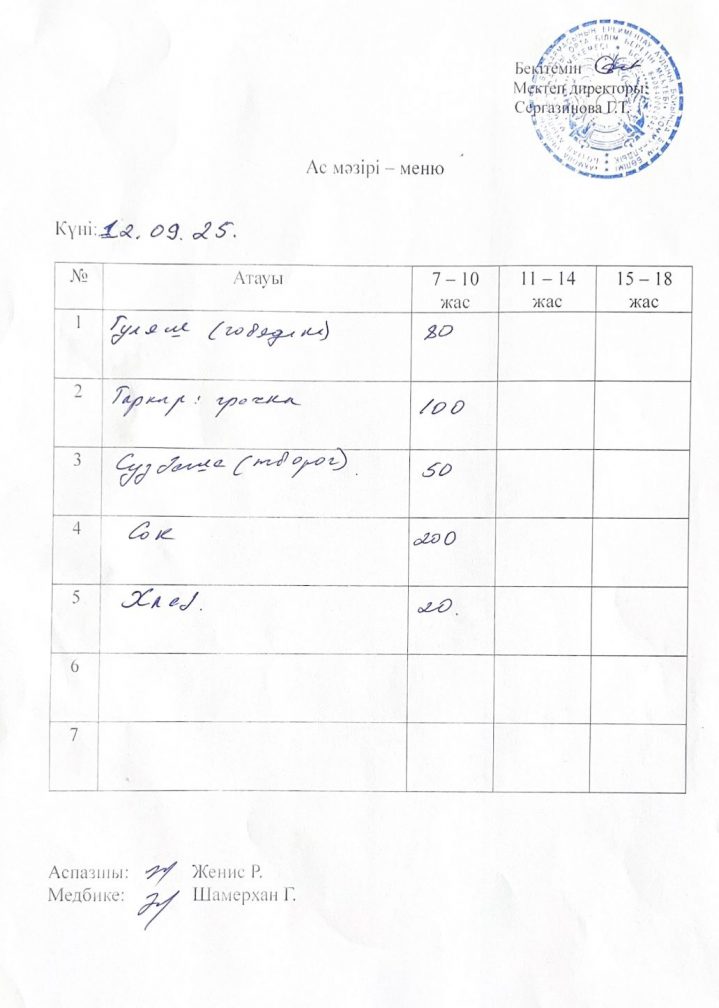 Бекітемін
Мектеп директоры:
Сергазинова Г.Т.
Ас мәзірі – меню
Күні: 12.09.25.
№ Атауы 7 – 10 жас 11 – 14 жас 15 – 18 жас
1 Гуляш (говядина) 80
2 Гарнир: гречка 100
3 Сузбеше (творог). 50
4 Сок 200
5 Хлеб. 20.
6
7
Аспазшы: Женис Р.
Медбике: Шамерхан Г.